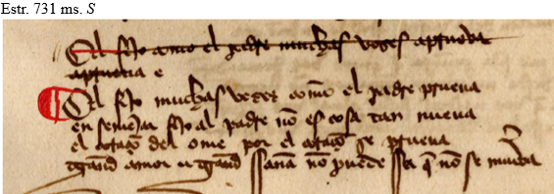 Estr. 731 ms. S
El fijo como el padre muchas vezes aprueua
aprueua e
El fijo muchas vezes comõ el padre prueua
en semejar fijo al padre nõ es cosa tan nueua
el coraçõ del ome por el coraçõ se prueua
grand amor e grand ssaña nõ puede sser q̃ nõ se mueva